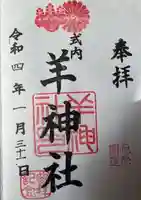 奉拝
式内
羊神社
令和四年一月三十一日